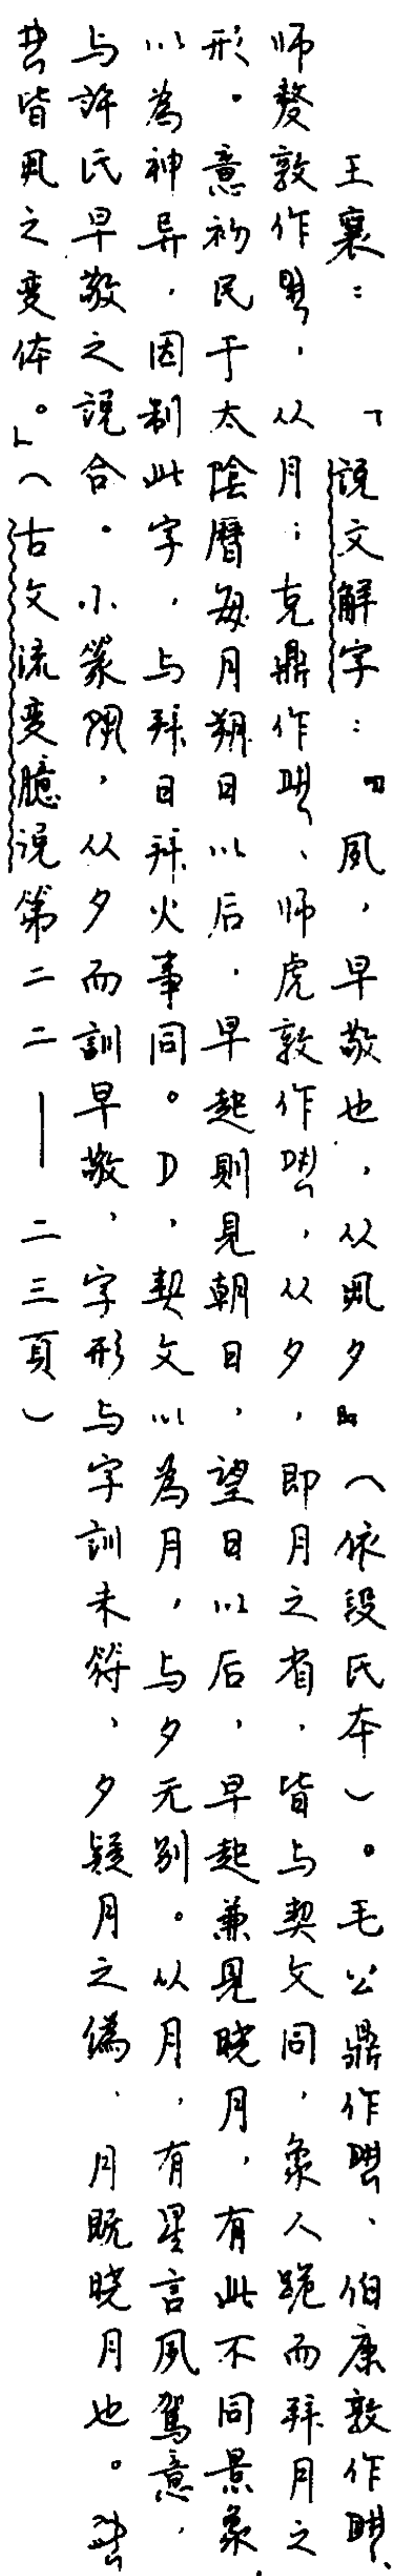 王襄：「說文解字：『夙，早敬也，从丮夕』（依段氏本）。毛公鼎作、伯康敦作、
师𠭰敦作，从月；克鼎作、师虎敦作，从夕，即月之省，皆与契文同，象人跪而拜月之
形。意初民于太陰曆每月朔日以后，早起則見朝日，望日以后，早起兼見晓月，有此不同景象，
以為神异，因制此字，与拜日拜火事同。D，契文以為月，与夕无别。从月，有星言夙駕意，
与許氏早敬之說合。小篆，从夕而訓早敬，字形与字訓未符，夕疑月之偽，月既晓月也。
皆丮之变体。」（古文流变臆说第二二——二三頁）